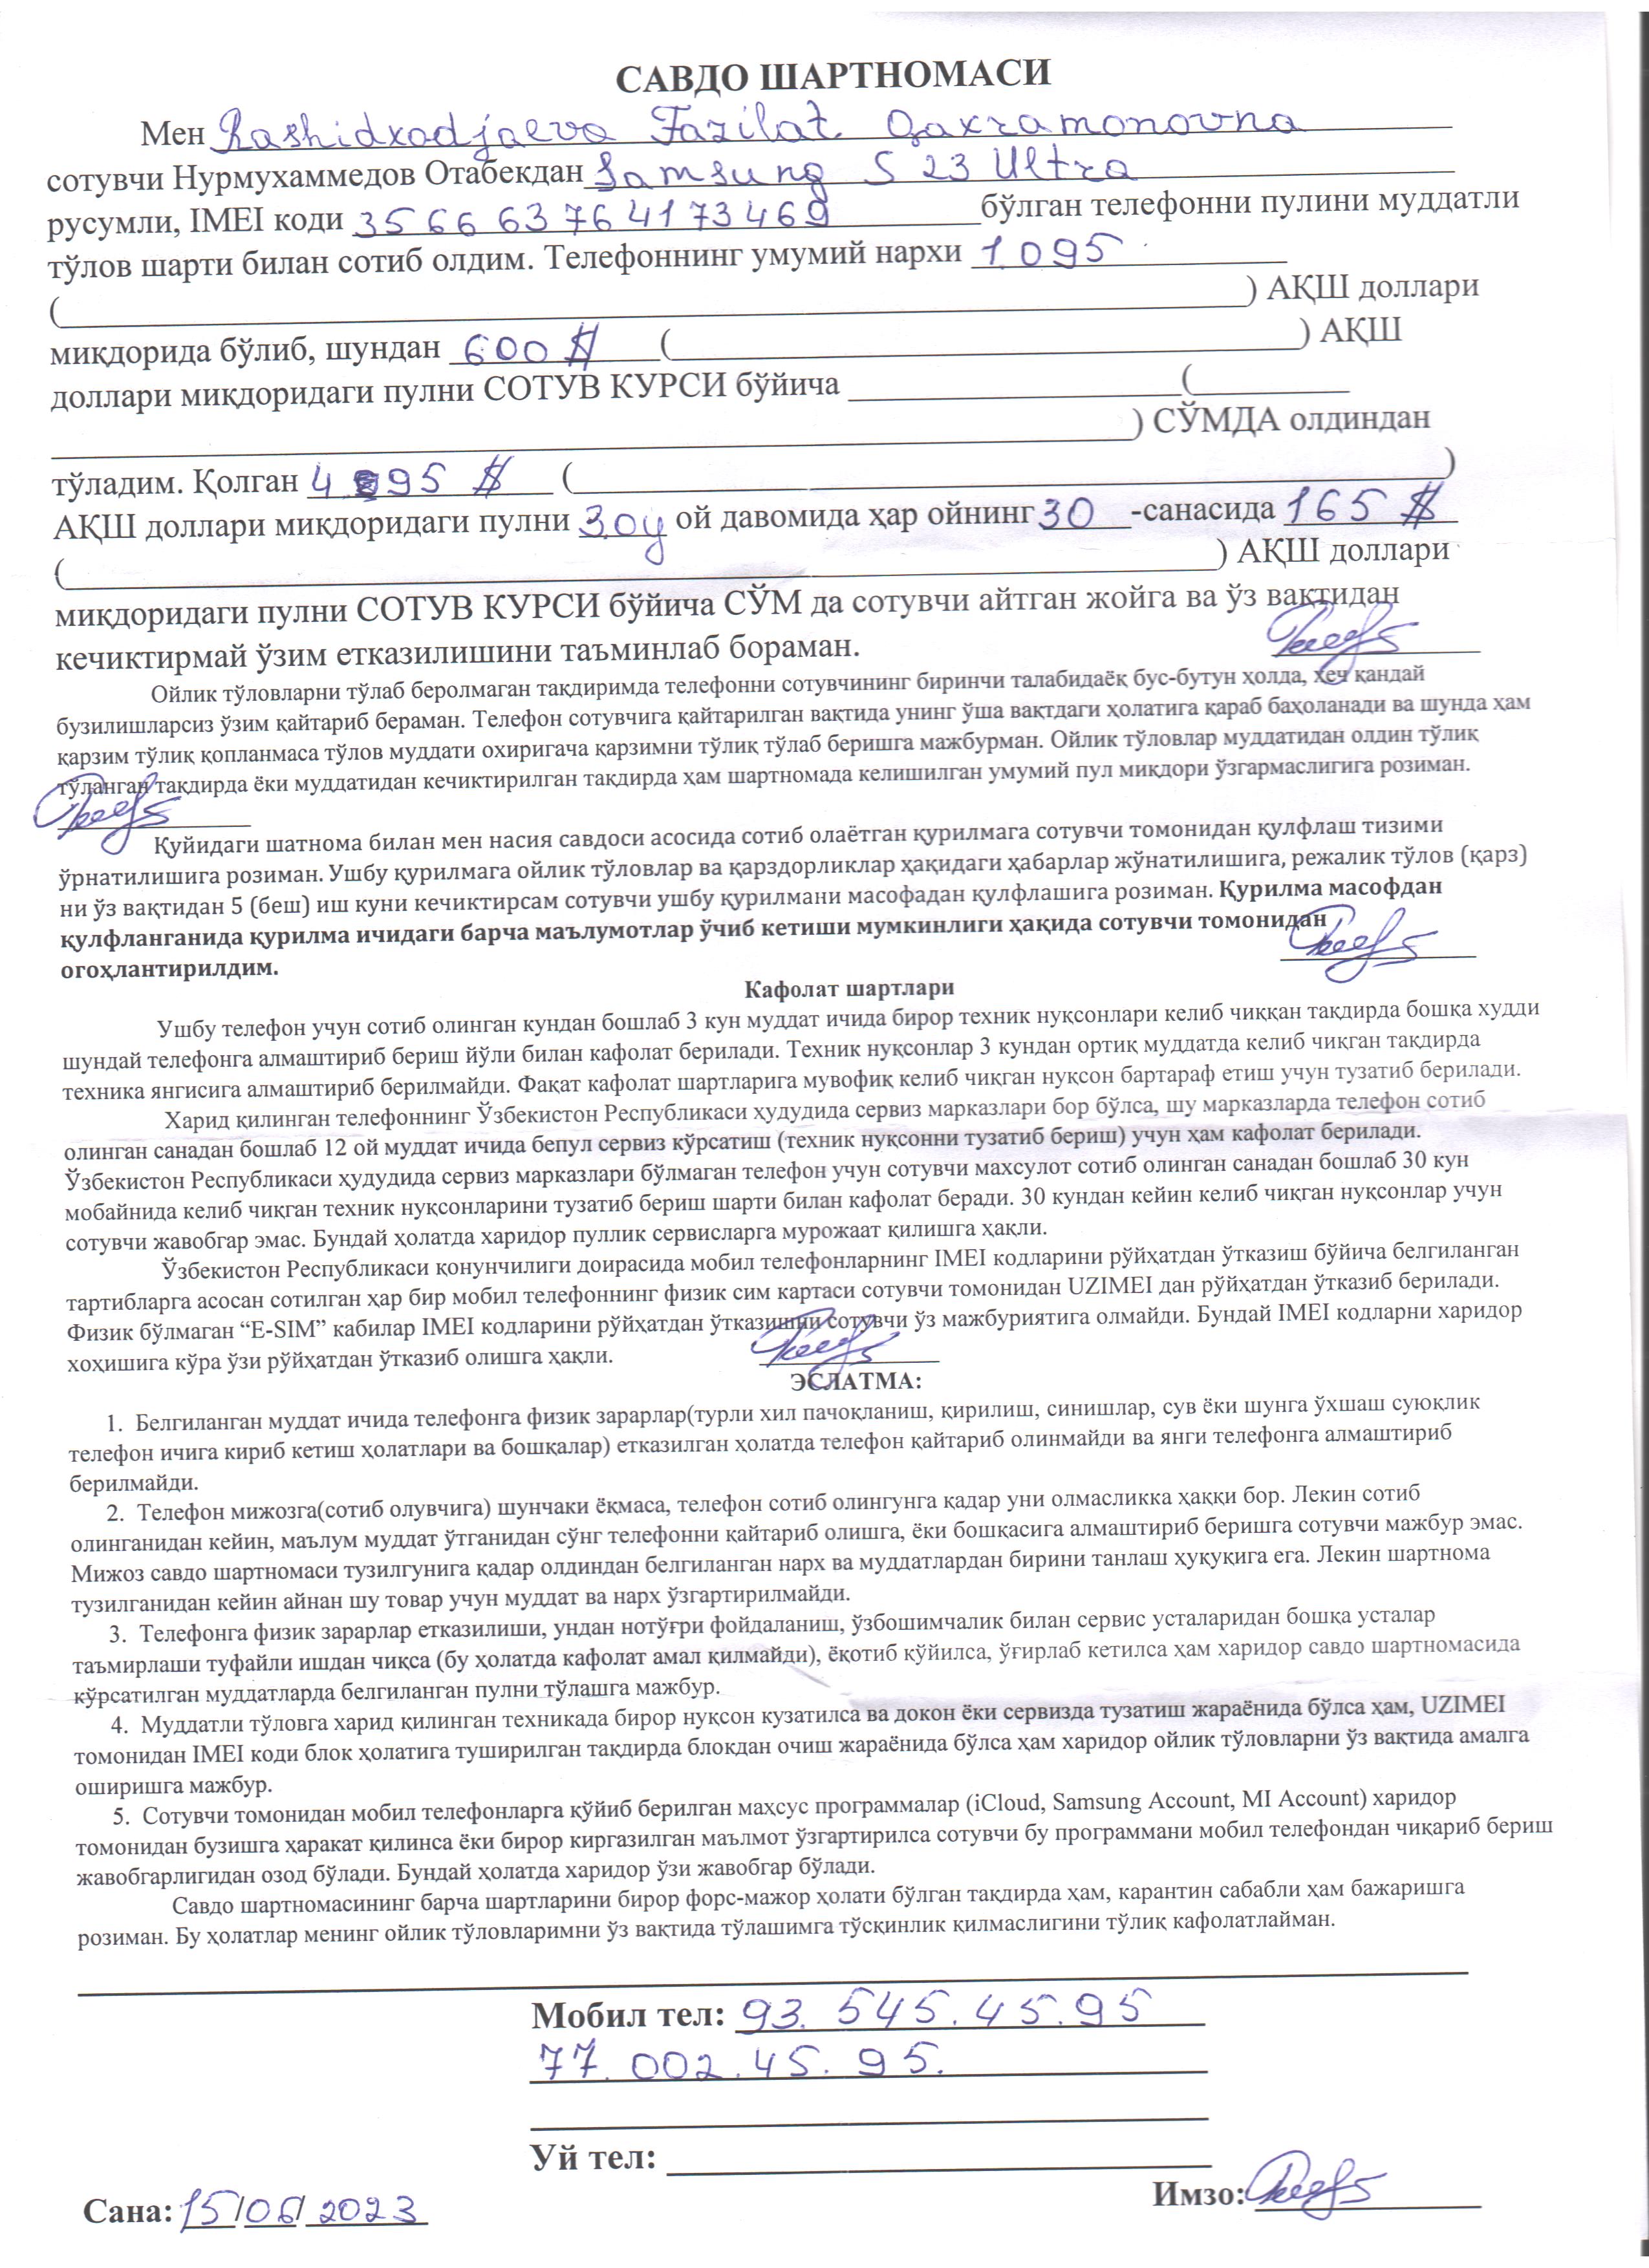 САВДО ШАРТНОМАСИ
Мен Rashidxodjaeva Fazilat Qaxramonovna
сотувчи Нурмухаммедов Отабекдан Samsung S 23 Ultra
русумли, IMEI коди 356663764173469 бўлган телефонни пулини муддатли
тўлов шарти билан сотиб олдим. Телефоннинг умумий нархи 1.095
(____) АҚШ доллари
миқдорида бўлиб, шундан 600 $ (____) АҚШ
доллари миқдоридаги пулни СОТУВ КУРСИ бўйича ____ (____
____) СЎМДА олдиндан
тўладим. Қолган 495 $ (____)
АҚШ доллари миқдоридаги пулни 3 oy ой давомида ҳар ойнинг 30 -санасида 165 $
(____) АҚШ доллари
миқдоридаги пулни СОТУВ КУРСИ бўйича СЎМ да сотувчи айтган жойга ва ўз вақтидан
кечиктирмай ўзим етказилишини таъминлаб бораман.
Ойлик тўловларни тўлаб беролмаган тақдиримда телефонни сотувчининг биринчи талабидаёқ бус-бутун ҳолда, хеч қандай
бузилишларсиз ўзим қайтариб бераман. Телефон сотувчига қайтарилган вақтида унинг ўша вақтдаги ҳолатига қараб баҳоланади ва шунда ҳам
қарзим тўлиқ қопланмаса тўлов муддати охиригача қарзимни тўлиқ тўлаб беришга мажбурман. Ойлик тўловлар муддатидан олдин тўлиқ
тўланган тақдирда ёки муддатидан кечиктирилган тақдирда ҳам шартномада келишилган умумий пул миқдори ўзгармаслигига розиман.
Қуйидаги шатнома билан мен насия савдоси асосида сотиб олаётган қурилмага сотувчи томонидан қулфлаш тизими
ўрнатилишига розиман. Ушбу қурилмага ойлик тўловлар ва қарздорликлар ҳақидаги ҳабарлар жўнатилишига, режалик тўлов (қарз)
ни ўз вақтидан 5 (беш) иш куни кечиктирсам сотувчи ушбу қурилмани масофадан қулфлашига розиман. Қурилма масофдан
қулфланганида қурилма ичидаги барча маълумотлар ўчиб кетиши мумкинлиги ҳақида сотувчи томонидан
огоҳлантирилдим.
Кафолат шартлари
Ушбу телефон учун сотиб олинган кундан бошлаб 3 кун муддат ичида бирор техник нуқсонлари келиб чиққан тақдирда бошқа худди
шундай телефонга алмаштириб бериш йўли билан кафолат берилади. Техник нуқсонлар 3 кундан ортиқ муддатда келиб чиқган тақдирда
техника янгисига алмаштириб берилмайди. Фақат кафолат шартларига мувофиқ келиб чиқган нуқсон бартараф етиш учун тузатиб берилади.
Харид қилинган телефоннинг Ўзбекистон Республикаси ҳудудида сервиз марказлари бор бўлса, шу марказларда телефон сотиб
олинган санадан бошлаб 12 ой муддат ичида бепул сервиз кўрсатиш (техник нуқсонни тузатиб бериш) учун ҳам кафолат берилади.
Ўзбекистон Республикаси ҳудудида сервиз марказлари бўлмаган телефон учун сотувчи махсулот сотиб олинган санадан бошлаб 30 кун
мобайнида келиб чиқган техник нуқсонларини тузатиб бериш шарти билан кафолат беради. 30 кундан кейин келиб чиқган нуқсонлар учун
сотувчи жавобгар эмас. Бундай ҳолатда харидор пуллик сервисларга мурожаат қилишга ҳақли.
Ўзбекистон Республикаси қонунчилиги доирасида мобил телефонларнинг IMEI кодларини рўйҳатдан ўтказиш бўйича белгиланган
тартибларга асосан сотилган ҳар бир мобил телефоннинг физик сим картаси сотувчи томонидан UZIMEI дан рўйҳатдан ўтказиб берилади.
Физик бўлмаган “E-SIM” кабилар IMEI кодларини рўйҳатдан ўтказишни сотувчи ўз мажбуриятига олмайди. Бундай IMEI кодларни харидор
хоҳишига кўра ўзи рўйҳатдан ўтказиб олишга ҳақли.
ЭСЛАТМА:
1. Белгиланган муддат ичида телефонга физик зарарлар(турли хил пачоқланиш, қирилиш, синишлар, сув ёки шунга ўхшаш суюқлик
телефон ичига кириб кетиш ҳолатлари ва бошқалар) етказилган ҳолатда телефон қайтариб олинмайди ва янги телефонга алмаштириб
берилмайди.
2. Телефон мижозга(сотиб олувчига) шунчаки ёқмаса, телефон сотиб олингунга қадар уни олмасликка ҳаққи бор. Лекин сотиб
олинганидан кейин, маълум муддат ўтганидан сўнг телефонни қайтариб олишга, ёки бошқасига алмаштириб беришга сотувчи мажбур эмас.
Мижоз савдо шартномаси тузилгунига қадар олдиндан белгиланган нарх ва муддатлардан бирини танлаш ҳуқуқига ега. Лекин шартнома
тузилганидан кейин айнан шу товар учун муддат ва нарх ўзгартирилмайди.
3. Телефонга физик зарарлар етказилиши, ундан нотўғри фойдаланиш, ўзбошимчалик билан сервис усталаридан бошқа усталар
таъмирлаши туфайли ишдан чиқса (бу ҳолатда кафолат амал қилмайди), ёқотиб қўйилса, ўғирлаб кетилса ҳам харидор савдо шартномасида
кўрсатилган муддатларда белгиланган пулни тўлашга мажбур.
4. Муддатли тўловга харид қилинган техникада бирор нуқсон кузатилса ва докон ёки сервизда тузатиш жараёнида бўлса ҳам, UZIMEI
томонидан IMEI коди блок ҳолатига туширилган тақдирда блокдан очиш жараёнида бўлса ҳам харидор ойлик тўловларни ўз вақтида амалга
оширишга мажбур.
5. Сотувчи томонидан мобил телефонларга қўйиб берилган маҳсус программалар (iCloud, Samsung Account, MI Account) харидор
томонидан бузишга ҳаракат қилинса ёки бирор киргазилган маълмот ўзгартирилса сотувчи бу программани мобил телефондан чиқариб бериш
жавобгарлигидан озод бўлади. Бундай ҳолатда харидор ўзи жавобгар бўлади.
Савдо шартномасининг барча шартларини бирор форс-мажор ҳолати бўлган тақдирда ҳам, карантин сабабли ҳам бажаришга
розиман. Бу ҳолатлар менинг ойлик тўловларимни ўз вақтида тўлашимга тўсқинлик қилмаслигини тўлиқ кафолатлайман.
Мобил тел: 93. 545. 45. 95
77. 002. 45. 95.
Уй тел:
Имзо:
Сана: 15/06/2023